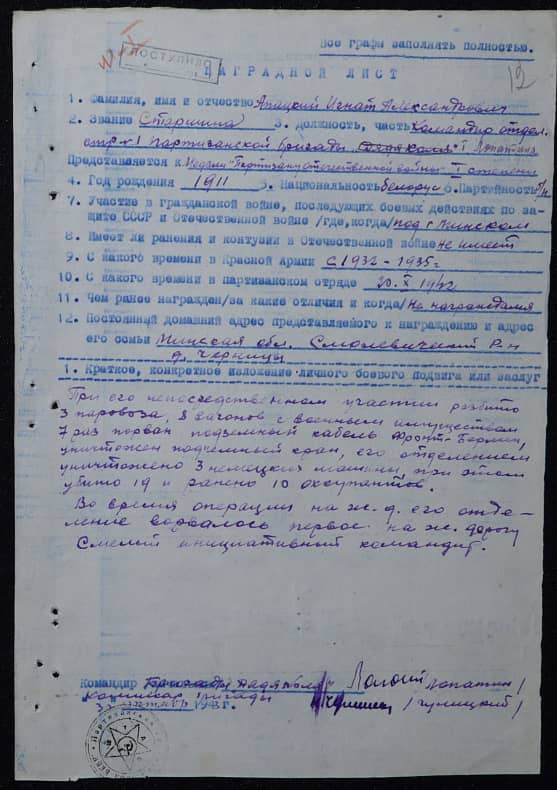 Все графы заполнять полностью.
ПОСТУПИЛО
12
НАГРАДНОЙ ЛИСТ
1. Фамилия, имя и отчество Апацкий Игнат Александрович
2. Звание Старшина 3. Должность, часть Командир отдел.
отр. 1 Партизанской бригады Лопатина
Представляется к Медали "Партизану отечественной войны" I степени
4. Год рождения 1911 5. Национальность белорус 6. Партийность б/п
7. Участие в гражданской войне, последующих боевых действиях по за-
щите СССР и Отечественной войне /где, когда/ под г. Минском
8. Имеет ли ранения и контузии в Отечественной войне не имеет
9. С какого времени в Красной Армии с 1932 - 1935 г
10. С какого времени в партизанском отряде 20.X 1942
11. Чем ранее награжден/за какие отличия и когда/ Не награждался
12. Постоянный домашний адрес представляемого к награждению и адрес
его семьи Минская обл. Смолевичский р-н
д. Черницы
1. Краткое, конкретное изложение личного боевого подвига или заслуг
При его непосредственном участии разбито
3 паровоза, 8 вагонов с военным имуществом
7 раз порван подземный кабель Фронт-Берлин,
уничтожен подъемный кран, его отделением
уничтожено 3 немецких машины, при этом
убито 19 и ранено 10 оккупантов.
Во время операции на ж.д. его отде-
ление ворвалось первое на ж. дорогу
Смелый инициативный командир.
Командир бригады дяди Коли Лопатин/
Комиссар бригады
октября 1943 г.